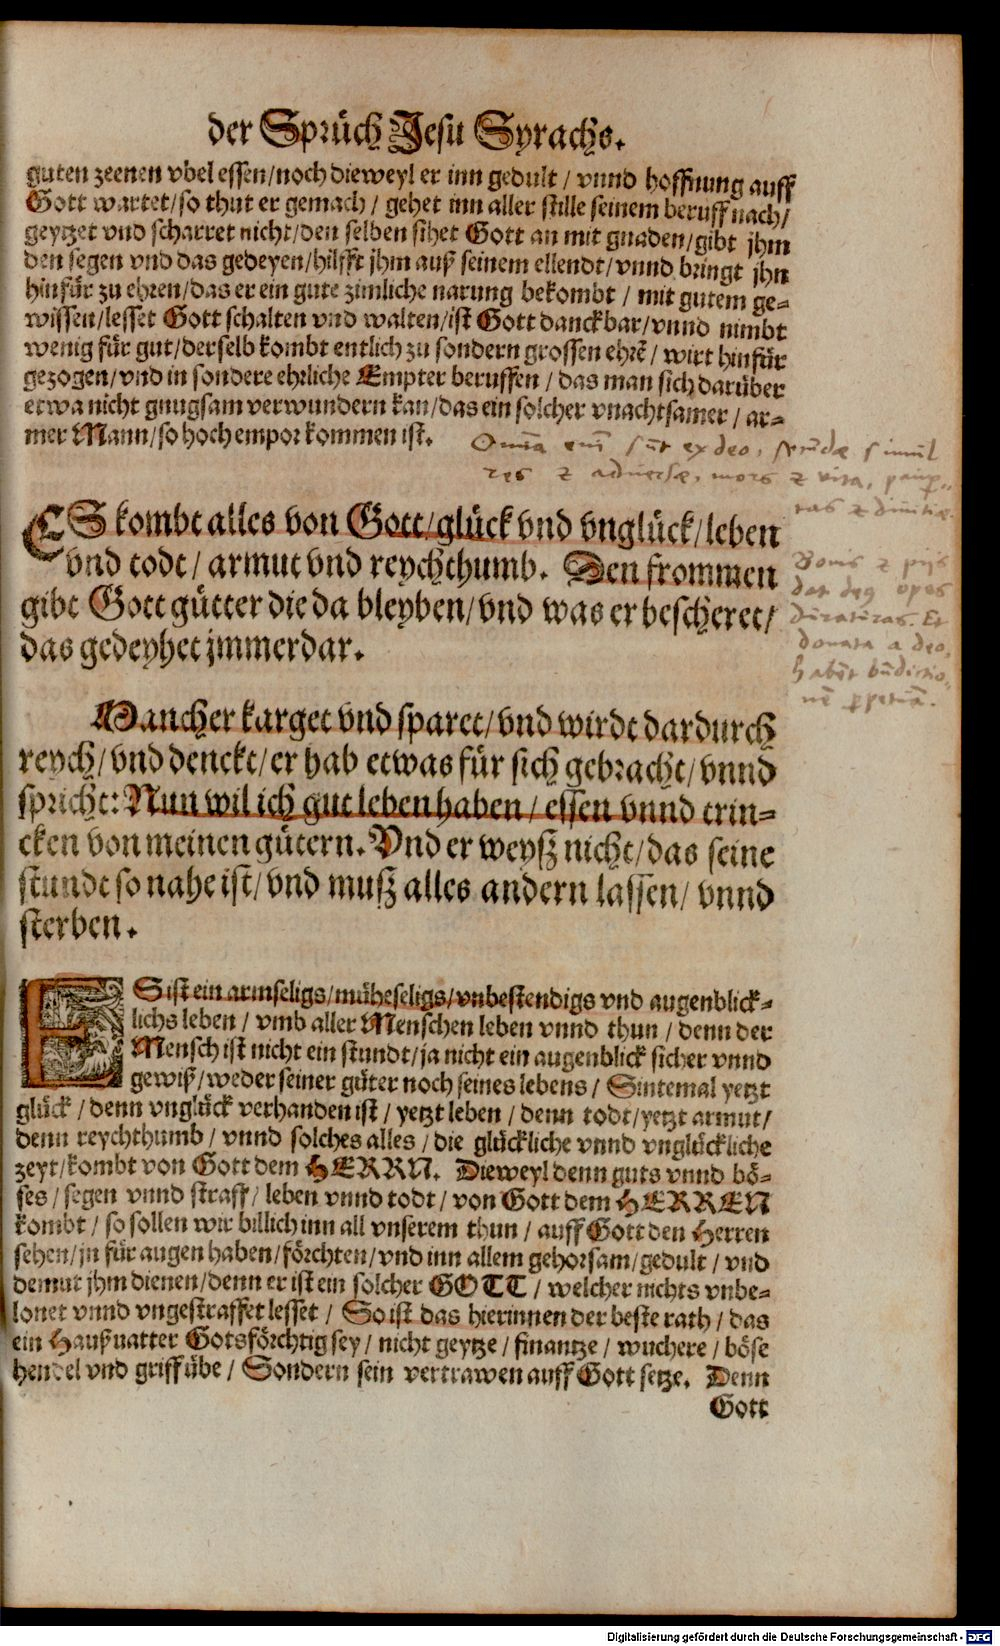 der Sprüch Jesu Syrachs.
guten zeenen vbel essen/noch dieweyl er inn gedult / vnnd hoffnung auff
Gott wartet/so thut er gemach / gehet inn aller stille seinem beruff nach/
geytzet vnd scharret nicht/den selben sihet Gott an mit gnaden/gibt jhm
den segen vnd das gedeyen/hilfft jhm auß seinem ellendt/vnnd bringt jhn
hinfür zu ehren/das er ein gute zimliche narung bekombt / mit gutem ge-
wissen/lesset Gott schalten vnd walten/ist Gott danckbar/vnnd nimbt
wenig für gut/derselb kombt entlich zu sondern grossen ehrẽ/ wirt hinfür
gezogen/vnd in sondere ehrliche Empter beruffen / das man sich darüber
etwa nicht gnugsam verwundern kan/das ein solcher vnachtsamer / ar-
mer Mann/so hoch empor kommen ist.
Omia eni sut ex deo, secudæ simul
res & adversæ, mors & vita, paup-
tas & divitiæ.
ES kombt alles von Gott/glück vnd vnglück/leben
vnd todt/ armut vnd reychthumb. Den frommen
gibt Gott gütter die da bleyben/vnd was er bescheret/
das gedeyhet jmmerdar.
Bonis & pijs
dat deq opes
duraturas. Et
donata a deo,
habet bndictio-
ne ppetua.
Mancher karget vnd sparet/vnd wirdt dardurch
reych/vnd denckt/er hab etwas für sich gebracht/vnnd
spricht: Nun wil ich gut leben haben/ essen vnnd trin-
cken von meinen gütern. Vnd er weyß nicht/das seine
stundt so nahe ist/vnd muß alles andern lassen/ vnnd
sterben.
ES ist ein armseligs/müheseligs/vnbestendigs vnd augenblick-
lichs leben / vmb aller Menschen leben vnnd thun / denn der
Mensch ist nicht ein stundt/ja nicht ein augenblick sicher vnnd
gewiß/weder seiner güter noch seines lebens / Sintemal yetzt
glück / denn vnglück verhanden ist / yetzt leben / denn todt/yetzt armut/
denn reychthumb / vnnd solches alles / die glückliche vnnd vnglückliche
zeyt/kombt von Gott dem HERRN. Dieweyl denn guts vnnd bö-
ses / segen vnnd straff/ leben vnnd todt / von Gott dem HERREN
kombt / so sollen wir billich inn all vnserem thun / auff Gott den Herren
sehen/jn für augen haben/förchten/vnd inn allem gehorsam/gedult / vnd
demut jhm dienen/denn er ist ein solcher GOTT / welcher nichts vnbe-
lonet vnnd vngestraffet lesset / So ist das hierinnen der beste rath / das
ein Haußuatter Gotsförchtig sey / nicht geytze / finantze / wuchere / böse
hendel vnd griff übe / Sondern sein vertrawen auff Gott setze. Denn
Gott
Digitalisierung gefördert durch die Deutsche Forschungsgemeinschaft - DFG